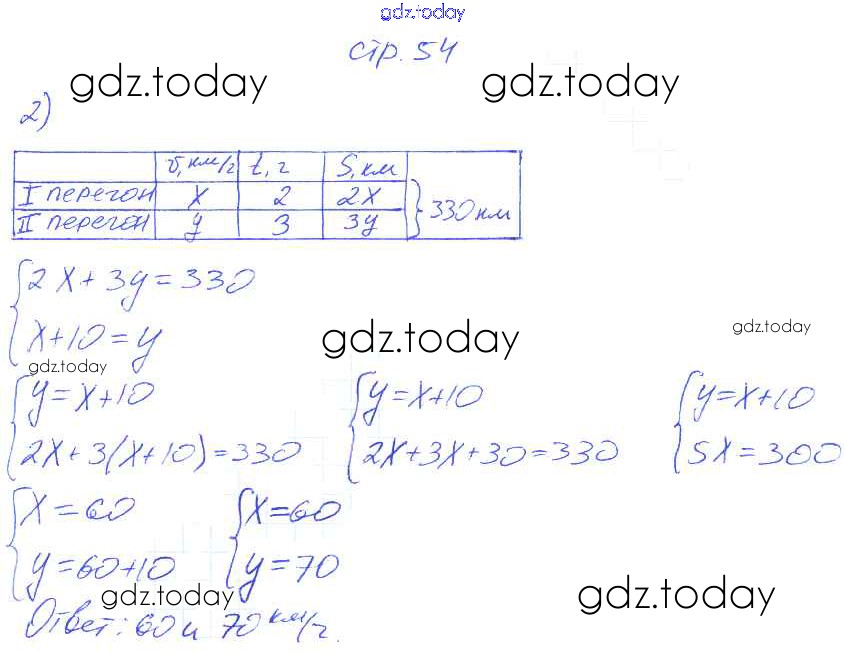 gdz.today
стр. 54
gdz.today gdz.today
2)
v, км/ч t, ч S, км
I перегон x 2 2x
II перегон y 3 3y
} 330 км
{ 2x + 3y = 330
x + 10 = y
gdz.today gdz.today
gdz.today
{ y = x+10 { y = x+10 { y = x+10
2x + 3(x+10) = 330 2x+3x+30=330 5x = 300
{ x = 60 { x = 60
y = 60+10 y = 70
gdz.today gdz.today
Ответ: 60 и 70 км/ч.